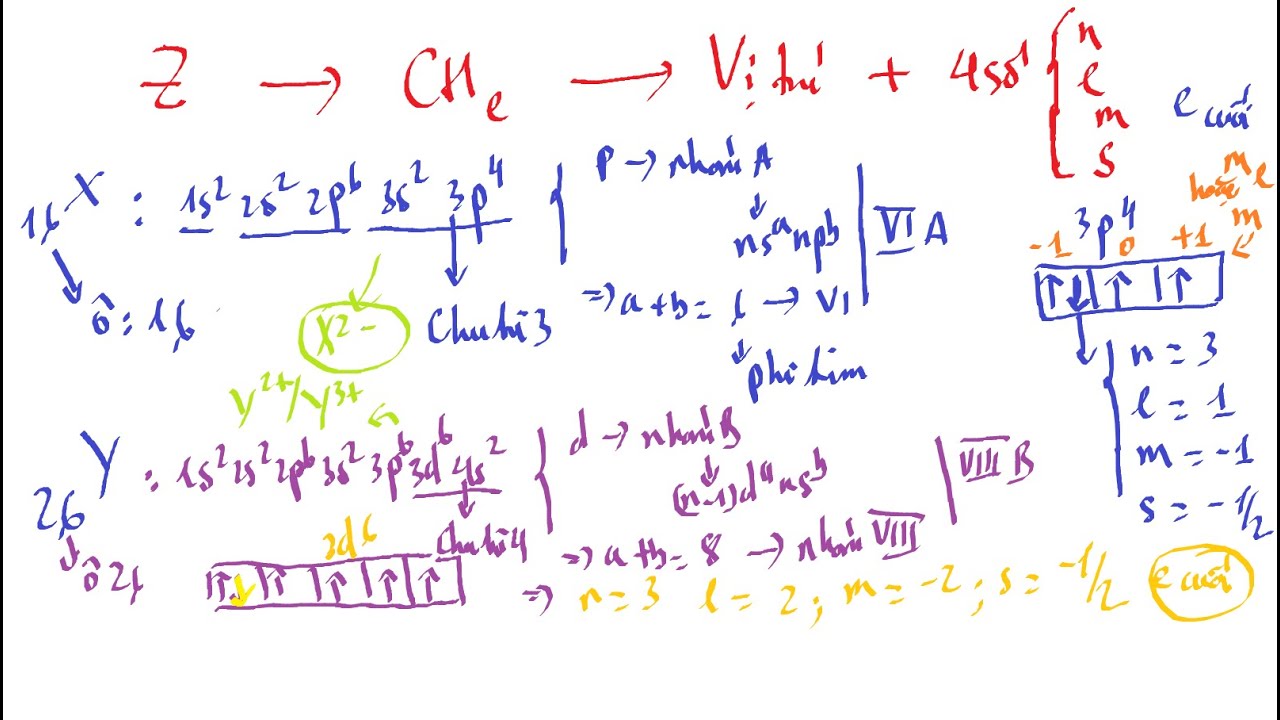 Z → CHe → Vị trí + 4 số { n
e
m
s
e cuối
me
hoặc
m
16X : 1s² 2s² 2p⁶ 3s² 3p⁴ { p → nhóm A
nsᵃnpᵇ
=> a + b = 6 → VI
phi kim
VI A
ô : 16
X²⁻
Chu kì 3
3p⁴
-1 0 +1
n = 3
l = 1
m = -1
s = -1/2
Y²⁺/Y³⁺
26Y : 1s²2s²2p⁶3s²3p⁶3d⁶4s² { d → nhóm B
(n-1)dᵃnsᵇ
=> a + b = 8 → nhóm VIII
VIII B
ô 26
Chu kì 4
3d⁶
=> n = 3 l = 2 ; m = -2 ; s = -1/2 e cuối